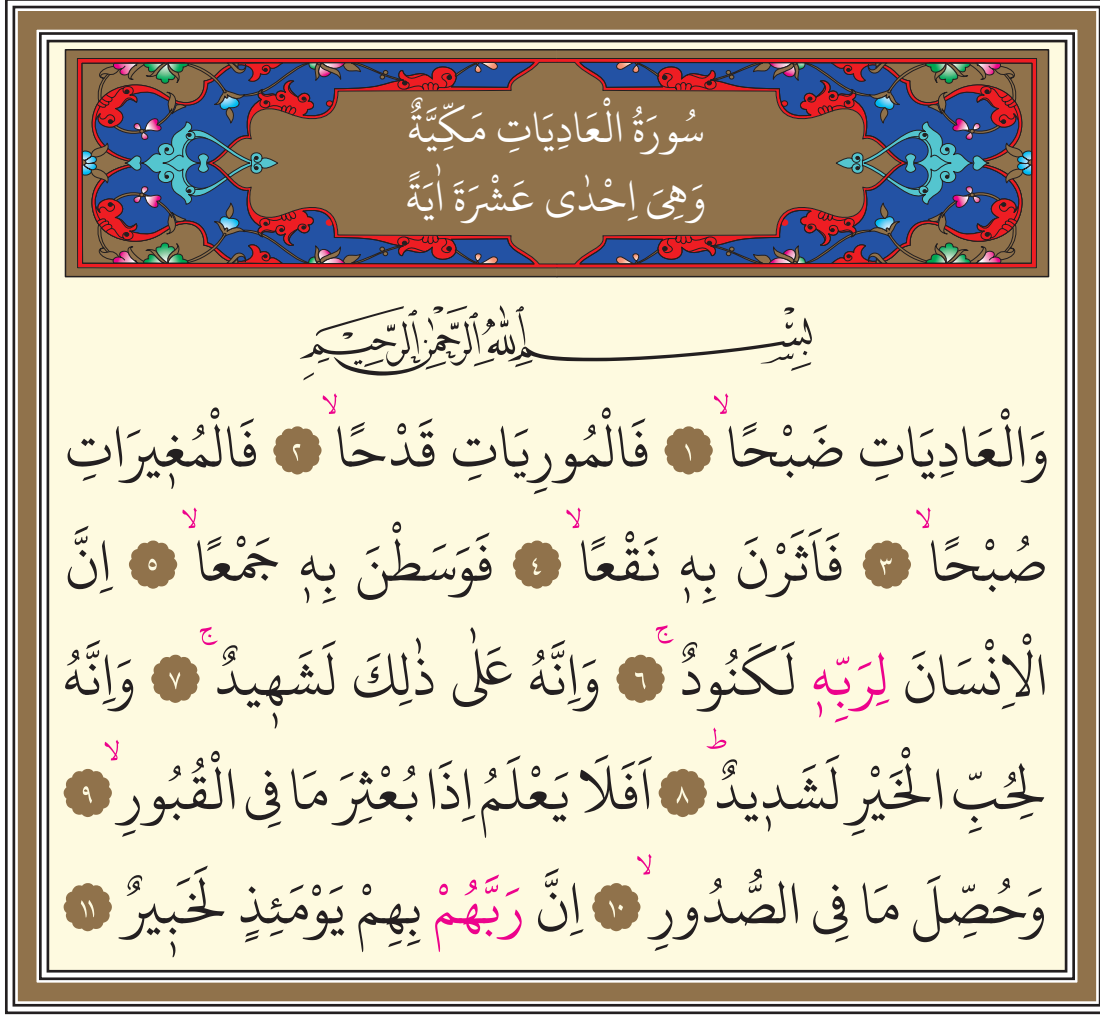 سُورَةُ الْعَادِيَاتِ مَكِّيَّةٌ
وَهِىَ اِحْدٰى عَشْرَةَ اٰيَةً
بِسْمِ اللّٰهِ الرَّحْمٰنِ الرَّحِيمِ
وَالْعَادِيَاتِ ضَبْحًاۙ ١ فَالْمُورِيَاتِ قَدْحًاۙ ٢ فَالْمُغ۪يرَاتِ
صُبْحًاۙ ٣ فَاَثَرْنَ بِه۪ نَقْعًاۙ ٤ فَوَسَطْنَ بِه۪ جَمْعًاۙ ٥ اِنَّ
الْاِنْسَانَ لِرَبِّه۪ لَكَنُودٌۚ ٦ وَاِنَّهُ عَلٰى ذٰلِكَ لَشَه۪يدٌۚ ٧ وَاِنَّهُ
لِحُبِّ الْخَيْرِ لَشَد۪يدٌۜ ٨ اَفَلَا يَعْلَمُ اِذَا بُعْثِرَ مَا فِى الْقُبُورِۙ ٩
وَحُصِّلَ مَا فِى الصُّدُورِۙ ١٠ اِنَّ رَبَّهُمْ بِهِمْ يَوْمَئِذٍ لَخَب۪يرٌ ١١